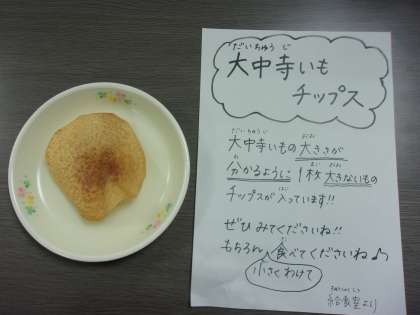 だいちゅうじ
大中寺いも
チップス
だいちゅうじ おお
大中寺いもの大きさが
わ まい おお
分かるように1枚大きないもの
はい
チップスが入っています!!
ぜひみてくださいね!!
た
もちろん食べてくださいね♪
小さくわけて
給食室より